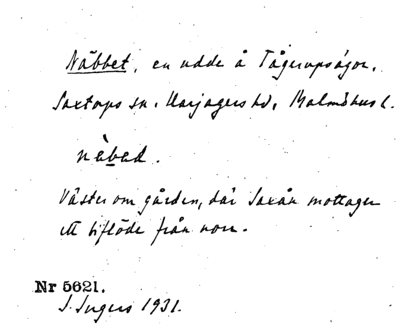 Näbbet, en udde å Tågerupsägor,
Saxtorps sn. Harjagers hd, Malmöhus l.
näbad.
Väster om gården, där Saxån mottager
ett biflöde från norr.
Nr 5621.
I. Ingers 1931.